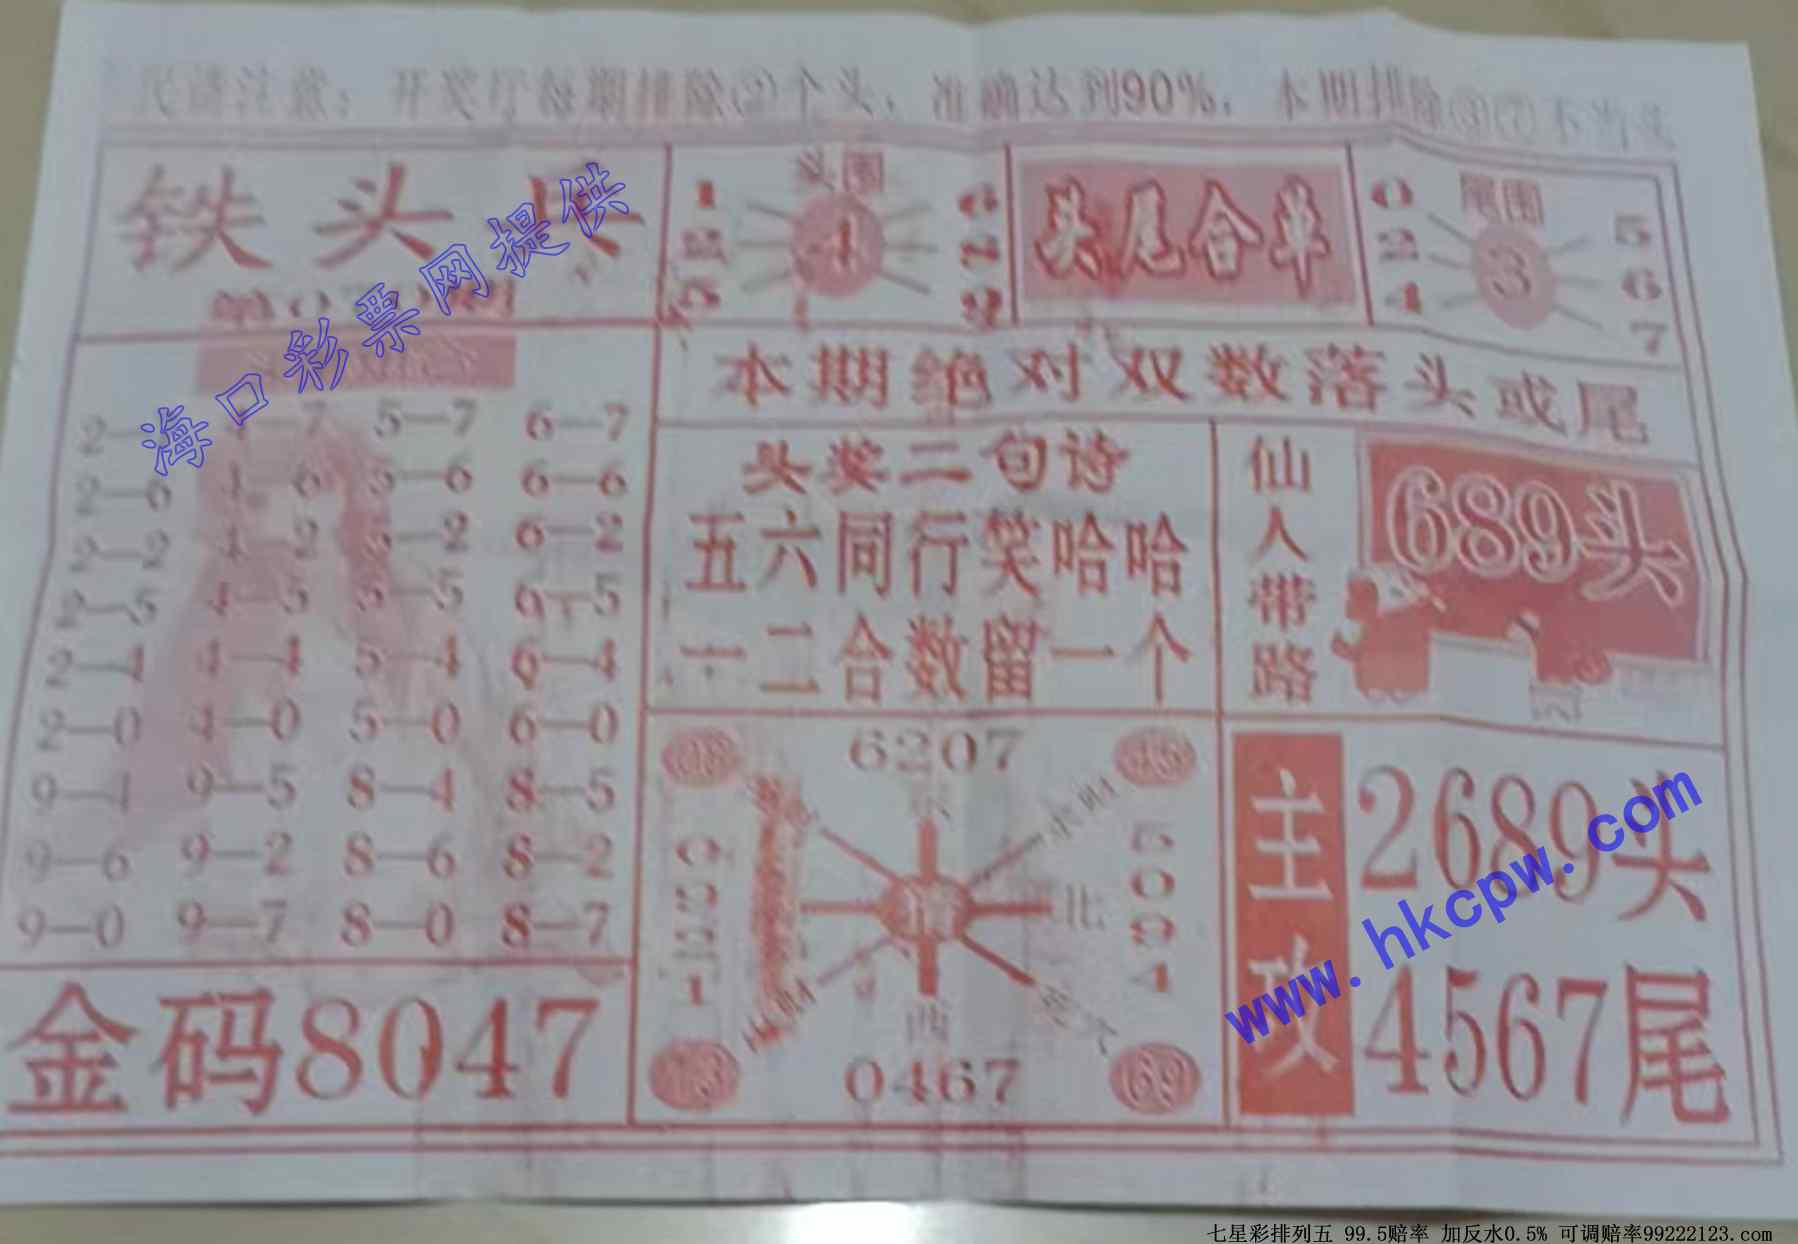 民请注意：开奖厅每期排除②个头，准确达到90%，本期排除③⑦不当头
铁 头
头围
1
4
6
头尾合单
尾围
0
5
3
6
4
7
本期绝对双数落头或尾
4—7 5—7 6—7
2—6 4—6 5—6 6—6
2—2 4—2 5—2 6—2
2—5 4—5 5—5 6—5
2—4 4—4 5—4 6—4
2—0 4—0 5—0 6—0
9—4 9—5 8—4 8—5
9—6 9—2 8—6 8—2
9—0 9—7 8—0 8—7
金码8047
头奖二句诗
五六同行笑哈哈
一二合数留一个
仙人带路
689头
6207
东
北
西
0467
69
主攻
2689头
4567尾
海口彩票网提供
www.hkcpw.com
七星彩排列五 99.5赔率 加反水0.5% 可调赔率99222123.com